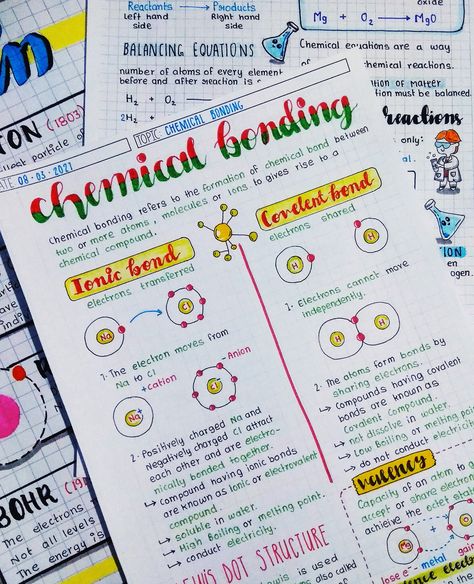 Reactants → Products
Left hand Right hand
side side
BALANCING EQUATIONS
number of atoms of every element
before and after reaction is
H₂ + O₂
2H₂ +
oxide
Mg + O₂ → MgO
Chemical equations are a way
chemical reactions.
of matter
tion must be balanced.
reactions
only:
al.
ION
en
ogen
TON (1803)
llest particle of
DATE 08-05-2021
TOPIC CHEMICAL BONDING
chemical bonding
Chemical bonding refers to the formation of chemical bond between
two or more atoms, molecules or ions to gives rise to a
chemical compound.
Ionic bond
electrons transferred
Na
Cl
1. The electron moves from
Na to Cl
+cation
-Anion
Na +
Cl -
2. Positively charged Na and
Negatively charged Cl attract
each other and are electro-
nically bonded together.
↳ Compound having ionic bonds
are known as Ionic or electrovalent
compound.
↳ soluble in water.
↳ High Boiling or melting point.
↳ conduct electricity.
Covelent bond
electrons shared
H
H
1- Electrons cannot move
independently.
H H
2. The atoms form bonds by
sharing electrons.
↳ Compounds having covalent
bonds are known as
Covalent Compound.
↳ not dissolve in water.
↳ Low Boiling or melting
↳ do not conduct electricity
Valency
Capacity of an atom to
accept or share electrons
achieve the octet
Mg
lose e⁻ metal
DOT STRUCTURE
is used
also called
BOHR
The electrons
Not all levels
The energy is